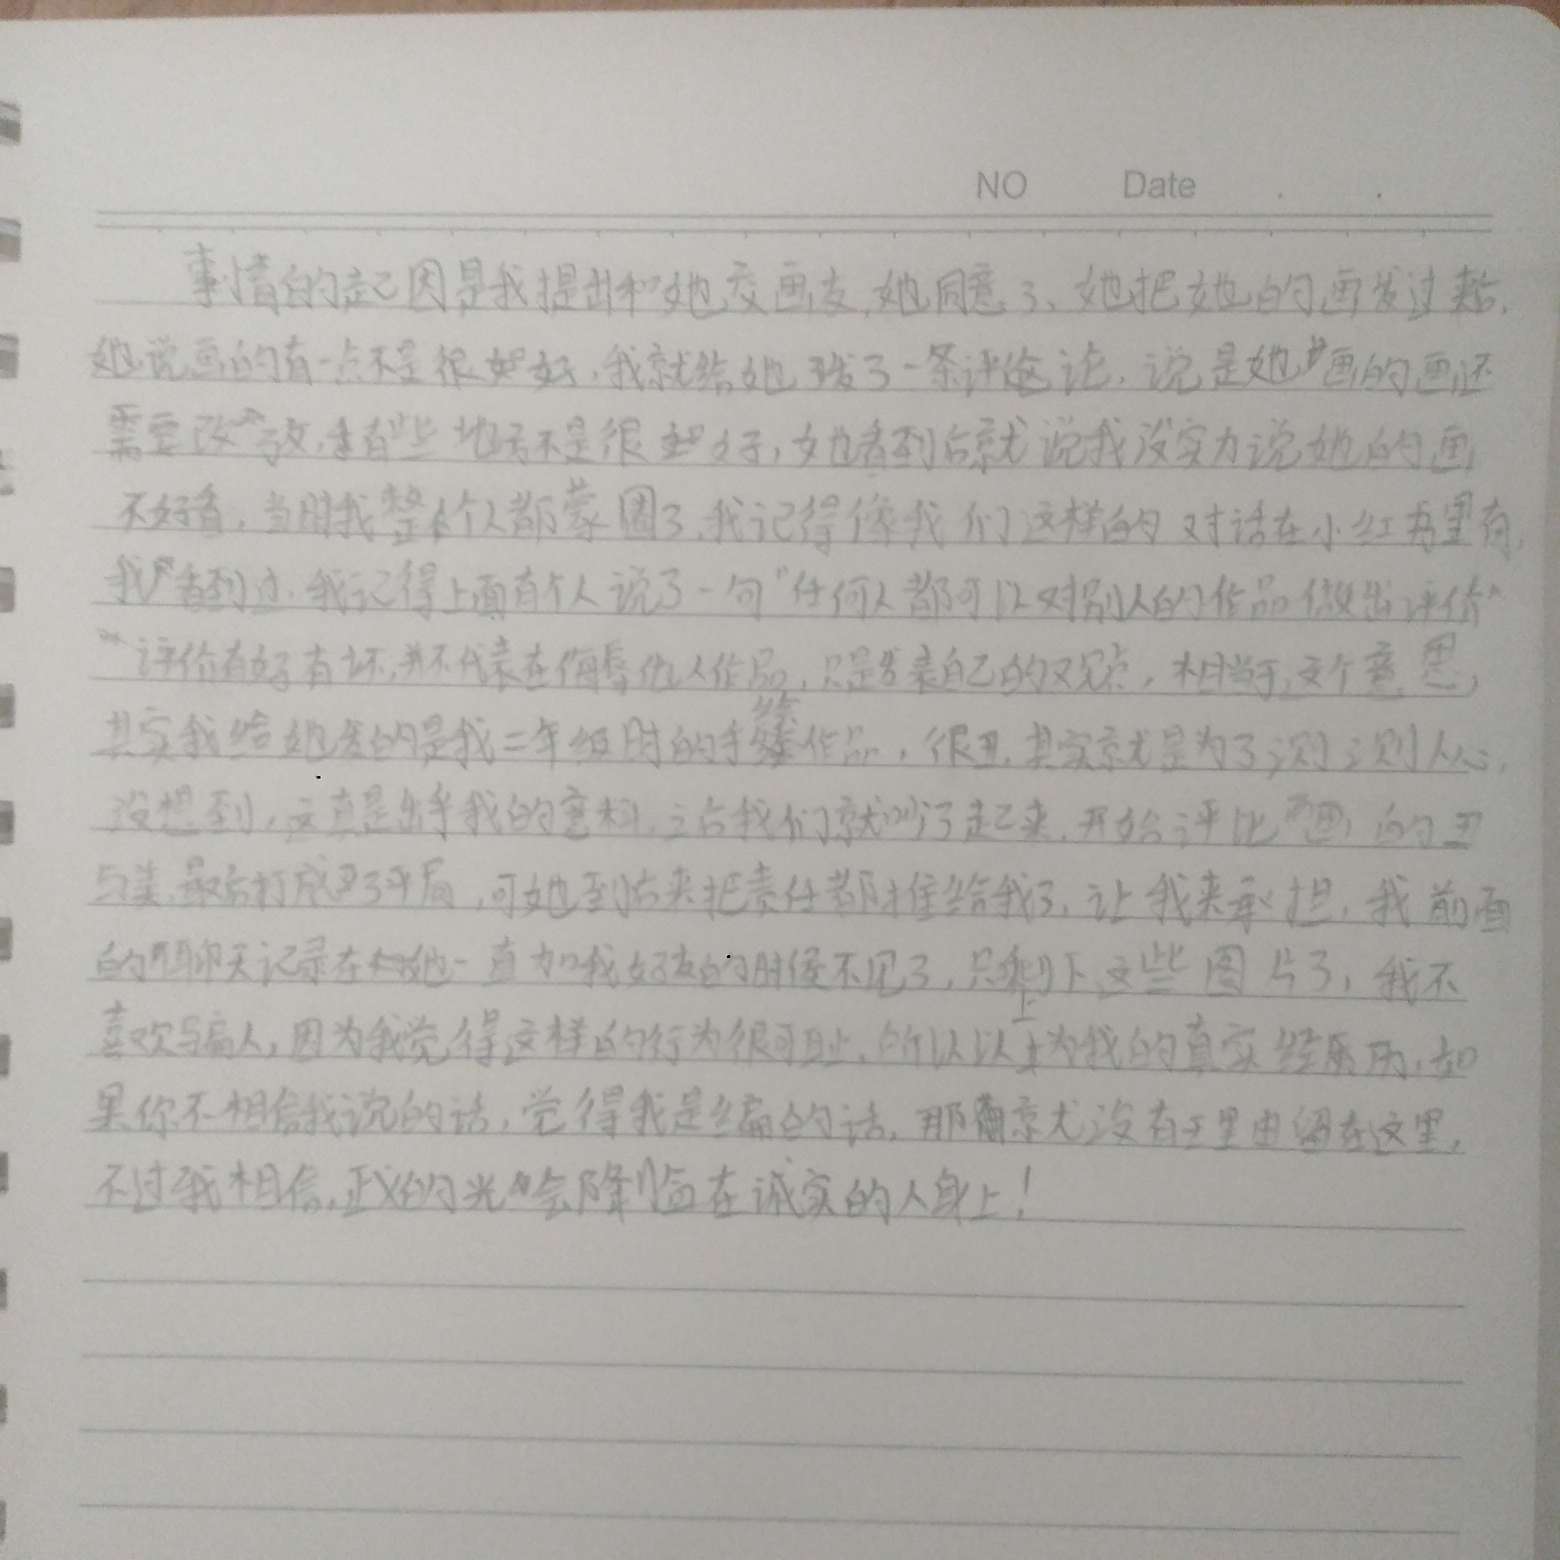 NO Date
事情的起因是我提出和她交画友,她同意了、她把她的画发过来后,
她说画的有一点不是很好,我就给她发了一条评论,说是她画的画还
需要改改,有些地方不是很好,她看到后就说我没实力说她的画
不好看,当时我整个人都蒙圈了,我记得像我们这样的对话在小红书里有,
我看到过.我记得上面有个人说了一句"任何人都可以对别人的作品做出评价"
评价有好有坏,并不代表在侮辱他人作品,只是发表自己的观点,相当于这个意思,
其实我给她发的是我二年级时的手绘作品,很丑,其实就是为了测测人心,
没想到,这真是出乎我的意料,之后我们就吵了起来,开始评比画的丑
与美,最后打成了平局,可她到后来把责任都推给我了,让我来承担,我前面
的聊天记录在她一直加我好友的时候不见了,只剩下这些图片了,我不
喜欢骗人,因为我觉得这样的行为很可耻,所以以上为我的真实经历,如
果你不相信我说的话,觉得我是编的话,那就没有理由留在这里,
不过我相信,正义的光会降临在诚实的人身上!